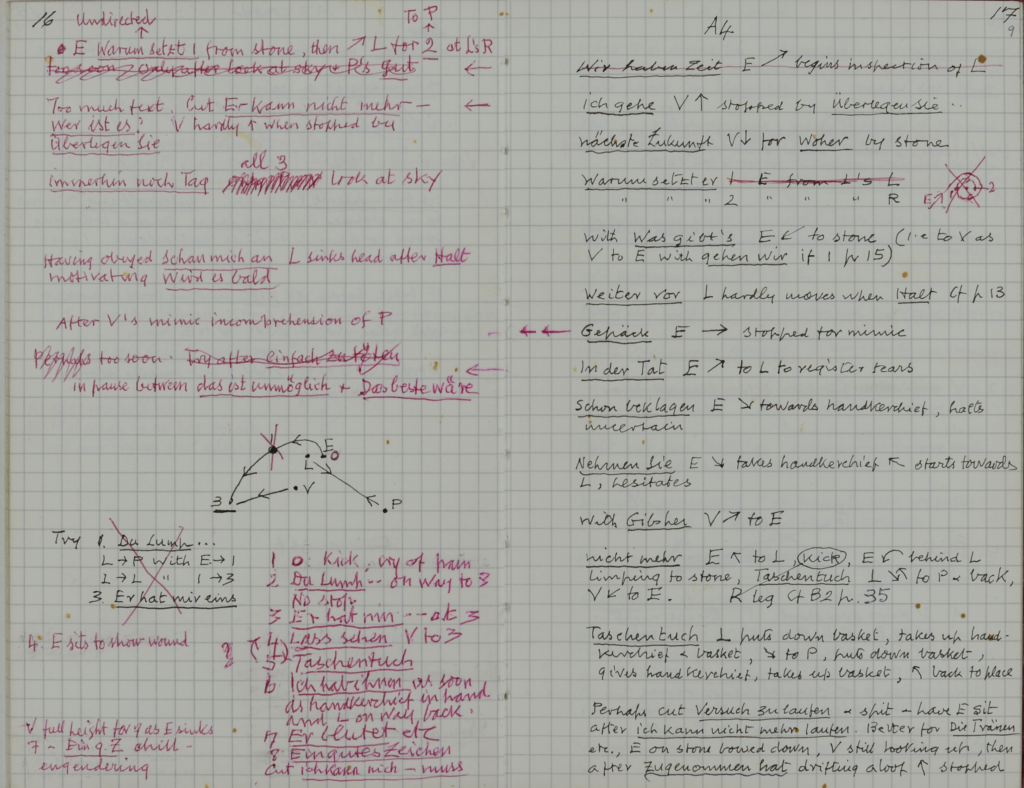 16 Undirected
To P
• E Warum setzt 1 from stone, then ↗ L for 2 at L's R
too soon → Only after look at sky + P's gut ←
Too much text. Cut Er kann nicht mehr — ←
Wer ist es? V hardly ↑ when stopped by
Überlegen Sie
all 3
immerhin noch Tag look at sky
Having obeyed Schau mich an L sinks head after Halt
motivating Wird es bald
After V's mimic incomprehension of P
Perhaps too soon. Try after einfach zu töten ←
in pause between das ist unmöglich + Das beste wäre
V
E
O
L
3
V
P
Try 1. Du Lump...
L → P with E → 1
L → L " 1 → 3
3. Er hat mir eins
4. E sits to show wound
V full height for 9 as E sinks
7 ~ Ein g. Z. chill -
engendering
1 O: Kick, cry of pain
2 Du Lump -- on way to 3
No stop
3 Er hat mir --- at 3
4 Lass sehen V to 3
5 Taschentuch
6 Ich hab ihnen as soon
as handkerchief in hand
and L on way back.
7 Er blutet etc
8 Ein gutes Zeichen
Cut ich kann nich — muss
17
9
A4
Wir haben Zeit E ↗ begins inspection of L
ich gehe V ↑ stopped by Überlegen Sie ..
nächste Zukunft V ↓ for Woher by stone
Warum setzt er 1 E from L's L
" " " 2 " " " R
E 2
With Was gibt's E ↙ to stone (i.e to V as
V to E with gehen wir if 1 p 15)
Weiter vor L hardly moves when Halt Cf p 13
←← Gepäck E → stopped for mimic
In der Tat E ↗ to L to register tears
Schon beklagen E ↘ towards handkerchief, halts
uncertain
Nehmen Sie E ↘ takes handkerchief ↖ starts towards
L, hesitates
With Gib her V ↗ to E
nicht mehr E ↖ to L, kick, E ↙ behind L
limping to stone, Taschentuch L ↘↖ to P & back,
V ↙ to E. R leg Cf B2 p. 35
Taschentuch L puts down basket, takes up hand-
kerchief & basket, ↘ to P, puts down basket,
gives handkerchief, takes up basket, ↖ back to place
Perhaps cut Versuch zu laufen & spit – have E sit
after ich kann nicht mehr laufen. Better for Die Tränen
etc., E on stone bowed down, V still looking up, then
after zugenommen hat drifting aloof ↑ stopped